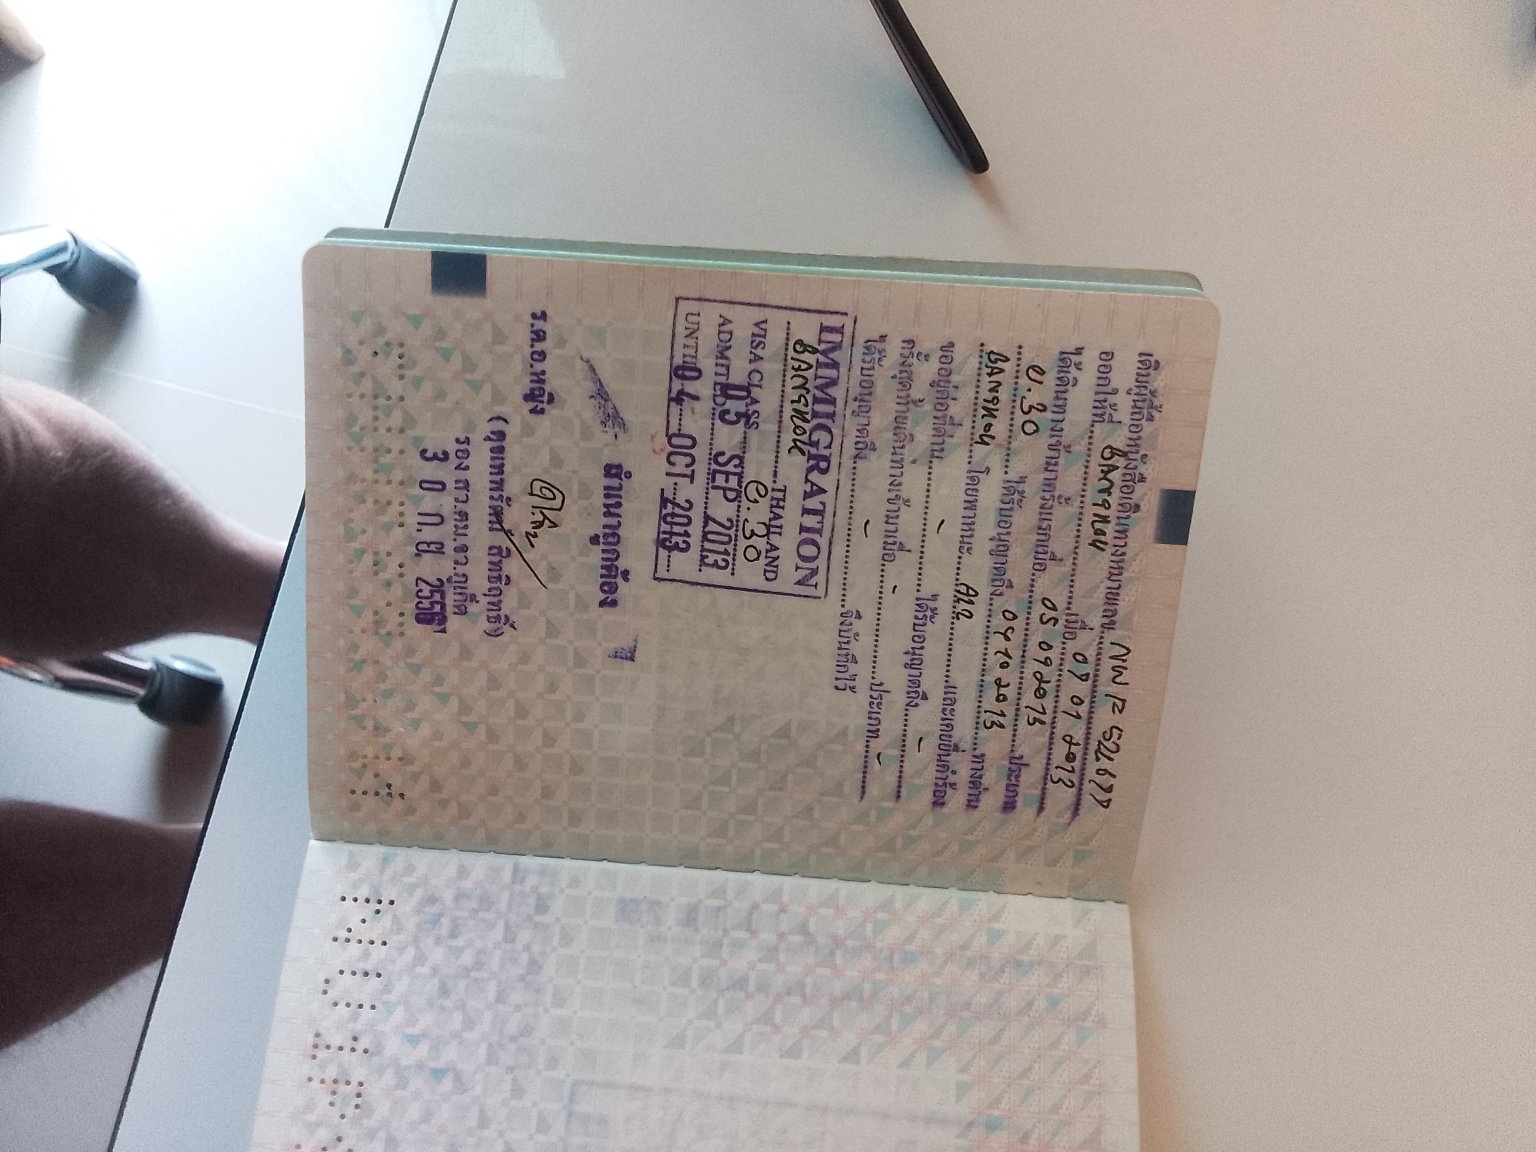 เดิมผู้นี้ถือหนังสือเดินทางหมายเลข
ออกให้ที่ BANGKOK เมื่อ
ได้เดินทางเข้ามาครั้งแรกเมื่อ 05 09 2013 ประเภท
ผ.30 ได้รับอนุญาตถึง 04 10 2013 ทางด่าน
BANGKOK โดยพาหนะ AIR และเคยยื่นคำร้อง
ขออยู่ต่อที่ด่าน - ได้รับอนุญาตถึง -
ครั้งสุดท้ายเดินทางเข้ามาเมื่อ - ประเภท -
ได้รับอนุญาตถึง - จึงบันทึกไว้
IMMIGRATION
BANGKOK THAILAND
VISA CLASS ผ.30
ADMITTED 05 SEP 2013
UNTIL 04 OCT 2013
สำเนาถูกต้อง
ร.ต.อ.หญิง
รอง สว.ตม.จว.ภูเก็ต
3 0 ก.ย. 2556